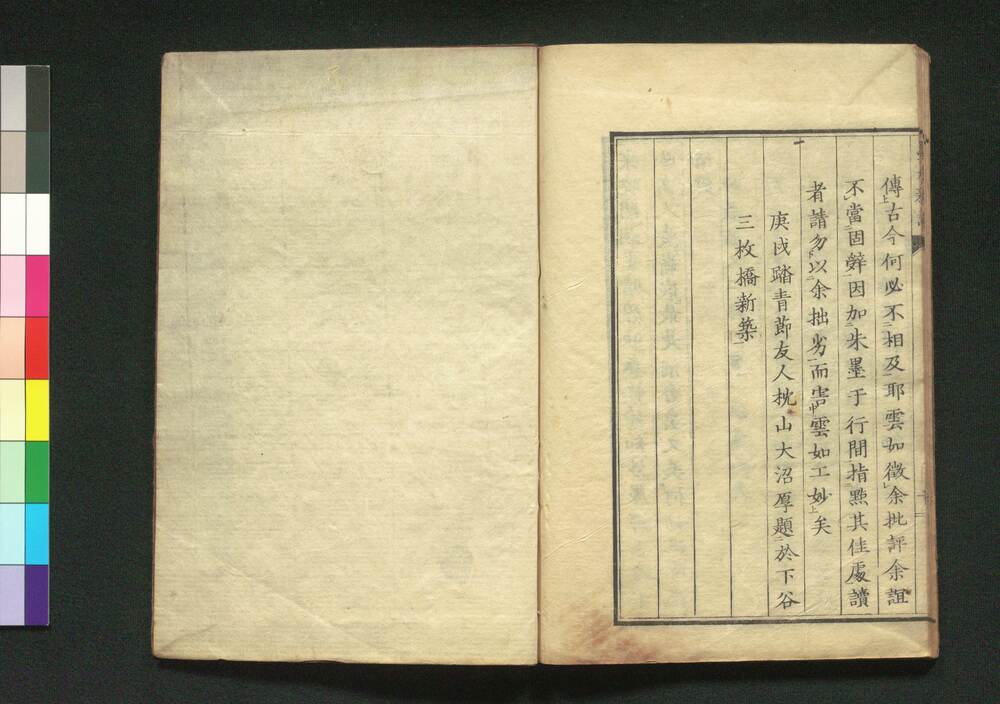 傳古今何必不相及耶雲如徵余批評余誼
不當固辤因加朱墨于行間指㸃其佳處讀
者請勿以余拙劣而害雲如工妙矣
庚戌踏青節友人枕山大沼厚題於下谷
三枚橋新築